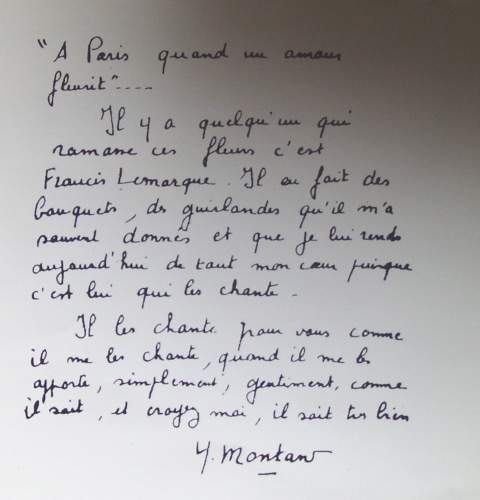 "A Paris quand un amour
fleurit"....
Il y a quelqu'un qui
ramasse ces fleurs c'est
Francis Lemarque. Il en fait des
bouquets, des guirlandes qu'il m'a
souvent donnés et que je lui rends
aujourd'hui de tout mon cœur puisque
c'est lui qui les chante.
Il les chante pour vous comme
il me les chante, quand il me les
apporte, simplement, gentiment, comme
il sait, et croyez moi, il sait très bien
Y. Montand